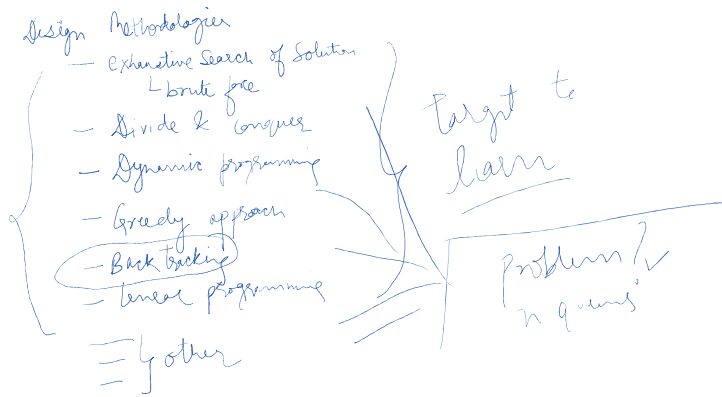 Design Methodologies
— Exhaustive Search of Solution
brute force
— Divide & Conquer
— Dynamic programming
— Greedy approach
— Backtracking
— Linear programming
other
target to
learn
problem?
n queens